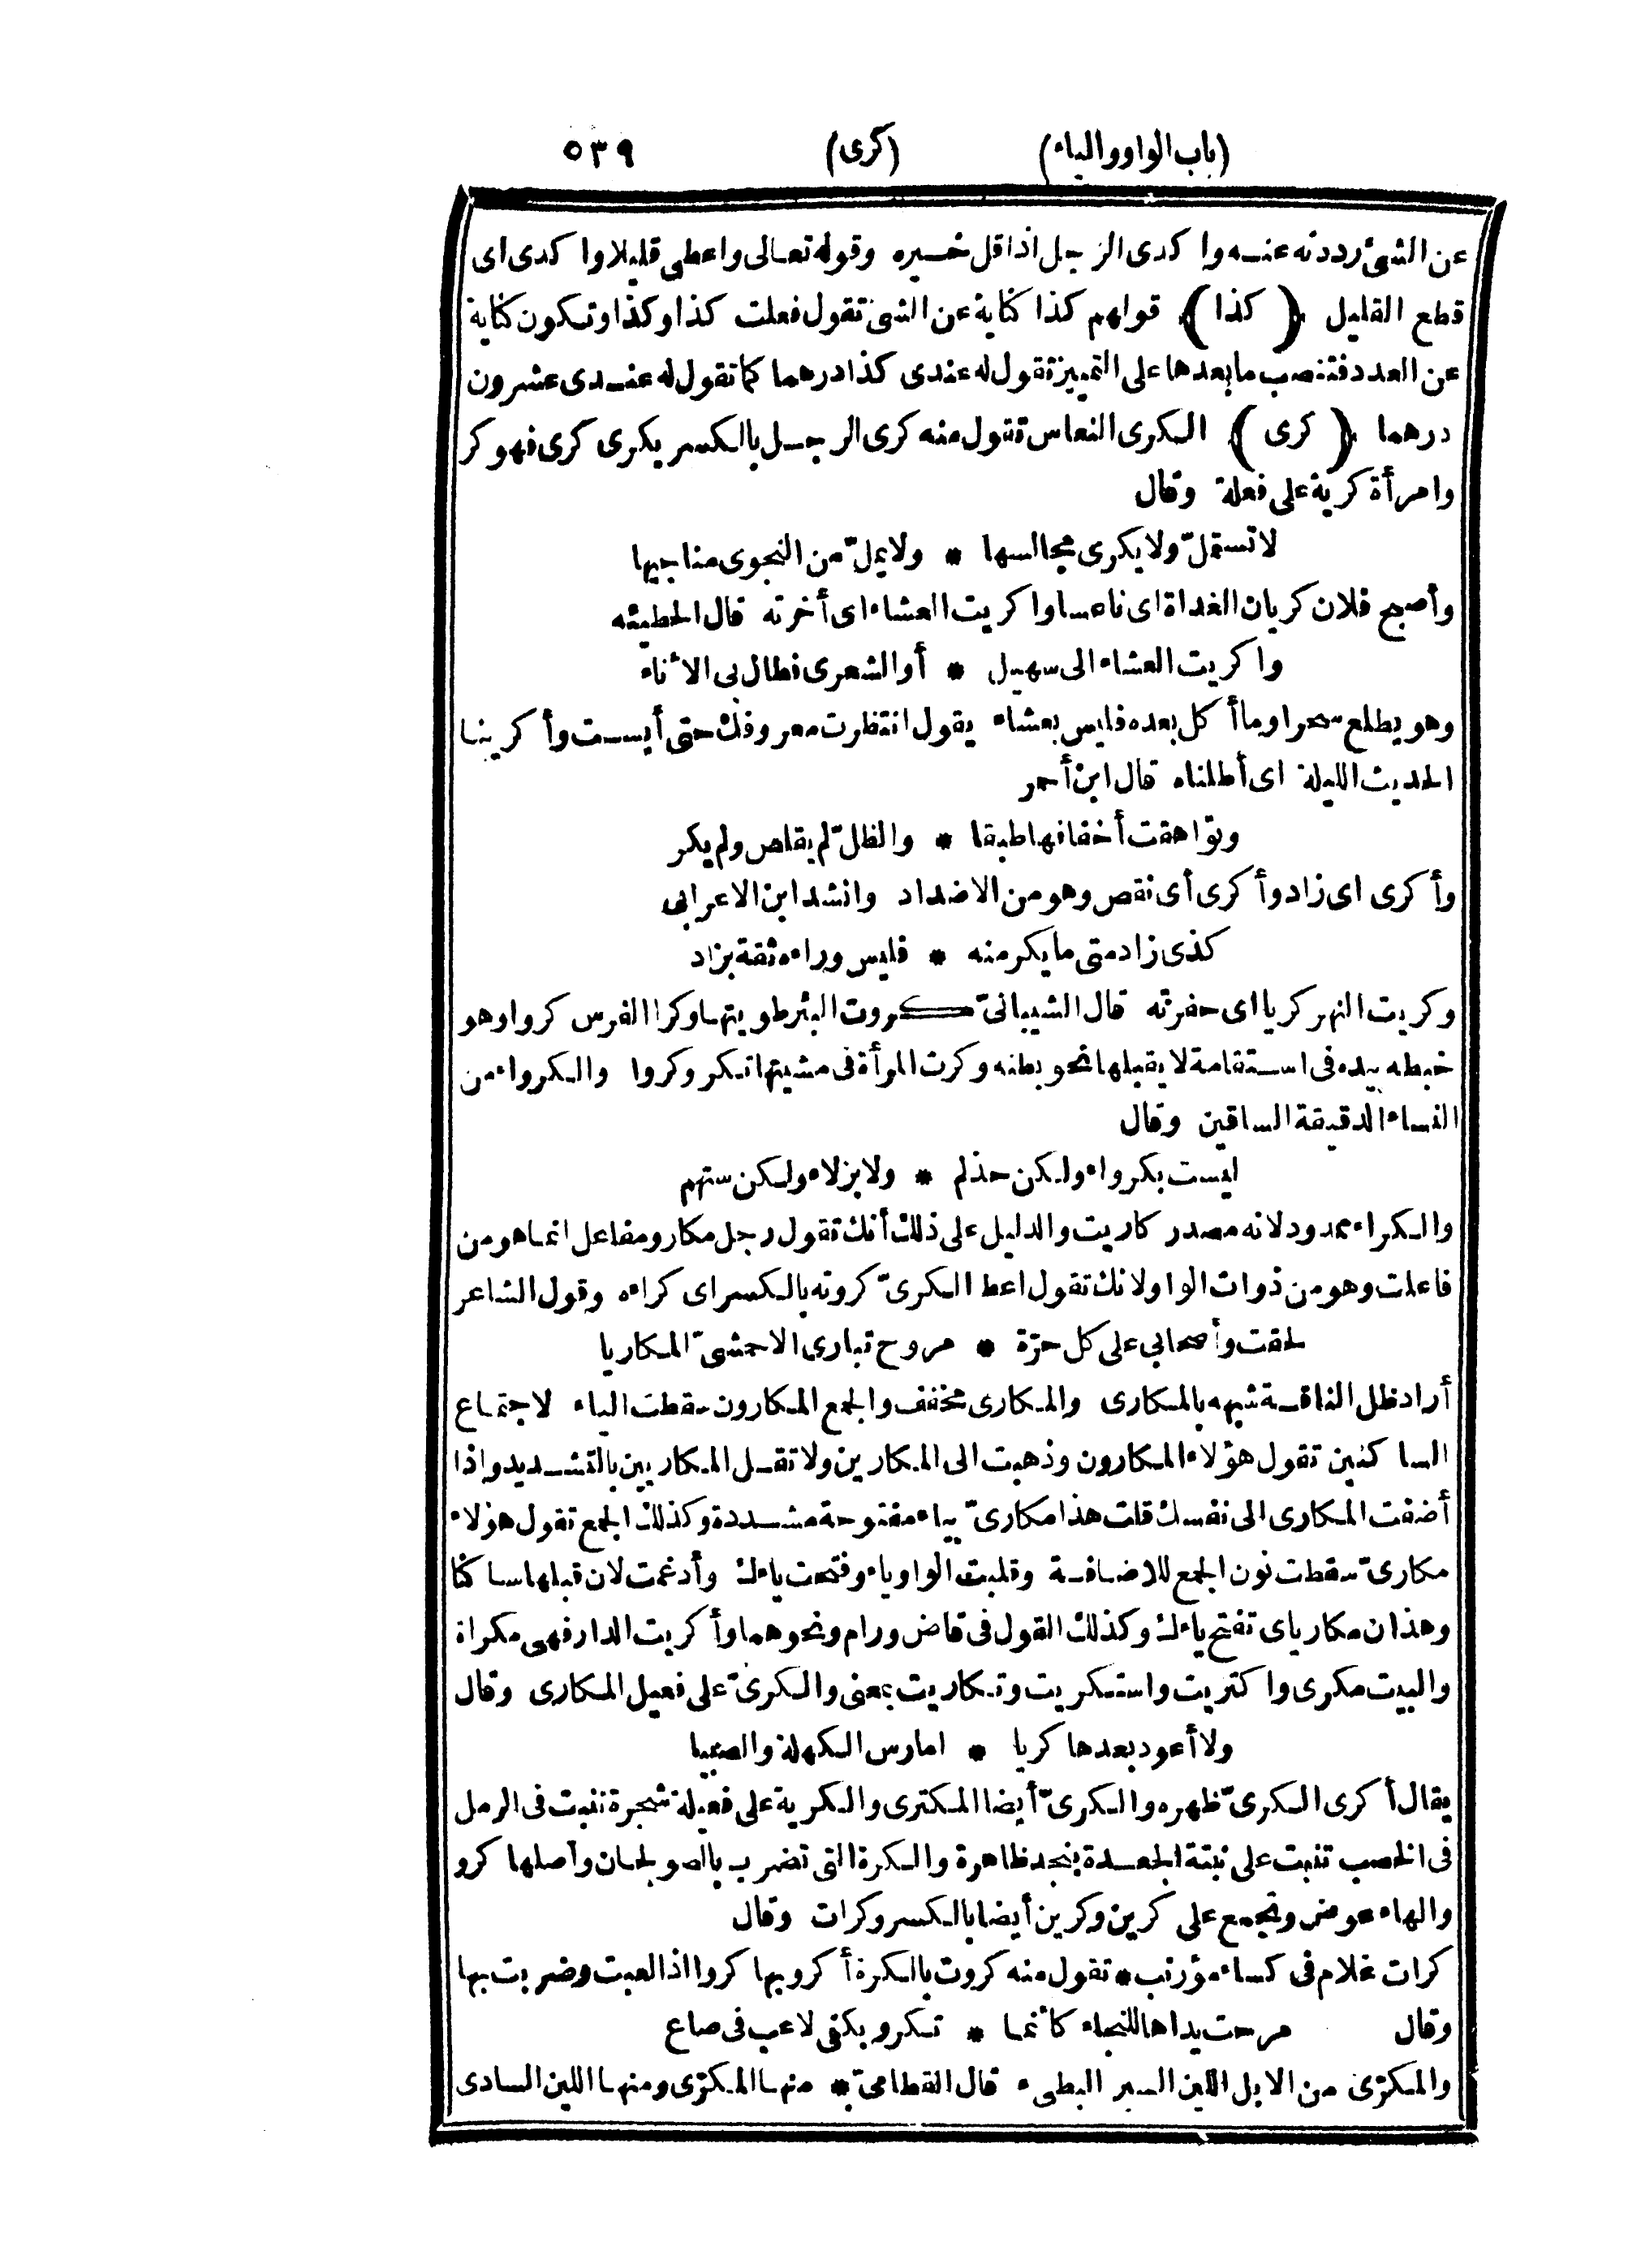 (باب الواو والياء) (كرى) ٥٣٩
عن الشئ رددته عنه واكدى الرجل اذا قل خيره وقوله تعالى واعطى قليلا واكدى اى
قطع القليل ﴿كذا﴾ قولهم كذا كناية عن الشئ تقول فعلت كذا وكذا وتكون كناية
عن العدد فتنصب ما بعدها على التمييز تقول له عندى كذا درهما كما تقول له عندى عشرون
درهما ﴿كرى﴾ الكرى النعاس تقول منه كرى الرجل بالكسر يكرى كرى فهو كر
وامرأة كرية على فعلة وقال
لا تستملّ ولا يكرى مجالسها * ولا يملّ من النجوى مناجيها
وأصبح فلان كريان الغداة اى ناعسا واكريت العشاء اى أخرته قال الحطيئه
واكريت العشاء الى سهيل * أو الشعرى فطال بى الأناء
وهو يطلع سحرا وما أكل بعده فليس بعشاء يقول انتظرت معروفك حتى أيست وأكرينا
الحديث الليلة اى أطلناه قال ابن أحمر
وتواهقت أخفافها طبقا * والظلّ لم يقلص ولم يكر
وأكرى اى زاد وأكرى أى نقص وهو من الاضداد وانشد ابن الاعرابى
كذى زاد متى ما يكر منه * فليس وراءه ثقة بزاد
وكريت النهر كريا اى حفرته قال الشيبانىّ كروت البئر طويتها وكرا الفرس كروا وهو
خبطه بيده فى استقامة لا يقبلها نحو بطنه وكرت المرأة فى مشيتها تكرو كروا والكرواء من
النساء الدقيقة الساقين وقال
ليست بكرواء ولكن خذلم * ولا بزلاء ولكن ستهم
والكراء ممدود لانه مصدر كاريت والدليل على ذلك أنك تقول رجل مكار ومفاعل انما هو من
فاعلت وهو من ذوات الواو لانك تقول اعط الكرىّ كروته بالكسر اى كراءه وقول الشاعر
لحقت وأصحابى على كل حرّة * مروح تبارى الاحمشىّ المكاريا
أراد ظل الناقة شبهه بالمكارى والمكارى مخفف والجمع المكارون سقطت الياء لاجتماع
الساكنين تقول هؤلاء المكارون وذهبت الى المكارين ولا تقل المكاريين بالتشديد واذا
أضفت المكارى الى نفسك قلت هذا مكارىّ بياء مفتوحة مشددة وكذلك الجمع تقول هؤلاء
مكارىّ سقطت نون الجمع للاضافة وقلبت الواو ياء وفتحت ياءك وأدغمت لان قبلها ساكنا
وهذان مكارياى تفتح ياءك وكذلك القول فى قاض ورام ونحوهما وأكريت الدار فهى مكراة
والبيت مكرى واكتريت واستكريت وتكاريت بمعنى والكرىّ على فعيل المكارى وقال
ولا أعود بعدها كريا * امارس الكهلة والصبيا
يقال أكرى الكرىّ ظهره والكرىّ أيضا المكترى والكرية على فعيلة شجرة تنبت فى الرمل
فى الخصب تنبت على نبتة الجعدة بنجد ظاهرة والكرة التى تضرب بالصولجان وأصلها كرو
والهاء عوض وتجمع على كرين وكرين أيضا بالكسر وكرات وقال
كرات غلام فى كساء مؤرنب * تقول منه كروت بالكرة أكرو بها كروا اذا لعبت وضربت بها
وقال مرحت يداها للنجاء كأنما * تكرو بكفى لاعب فى صاع
والمكرّى من الابل اللين السير البطىء قال القطامىّ * منها المكرّى ومنها اللين السادى